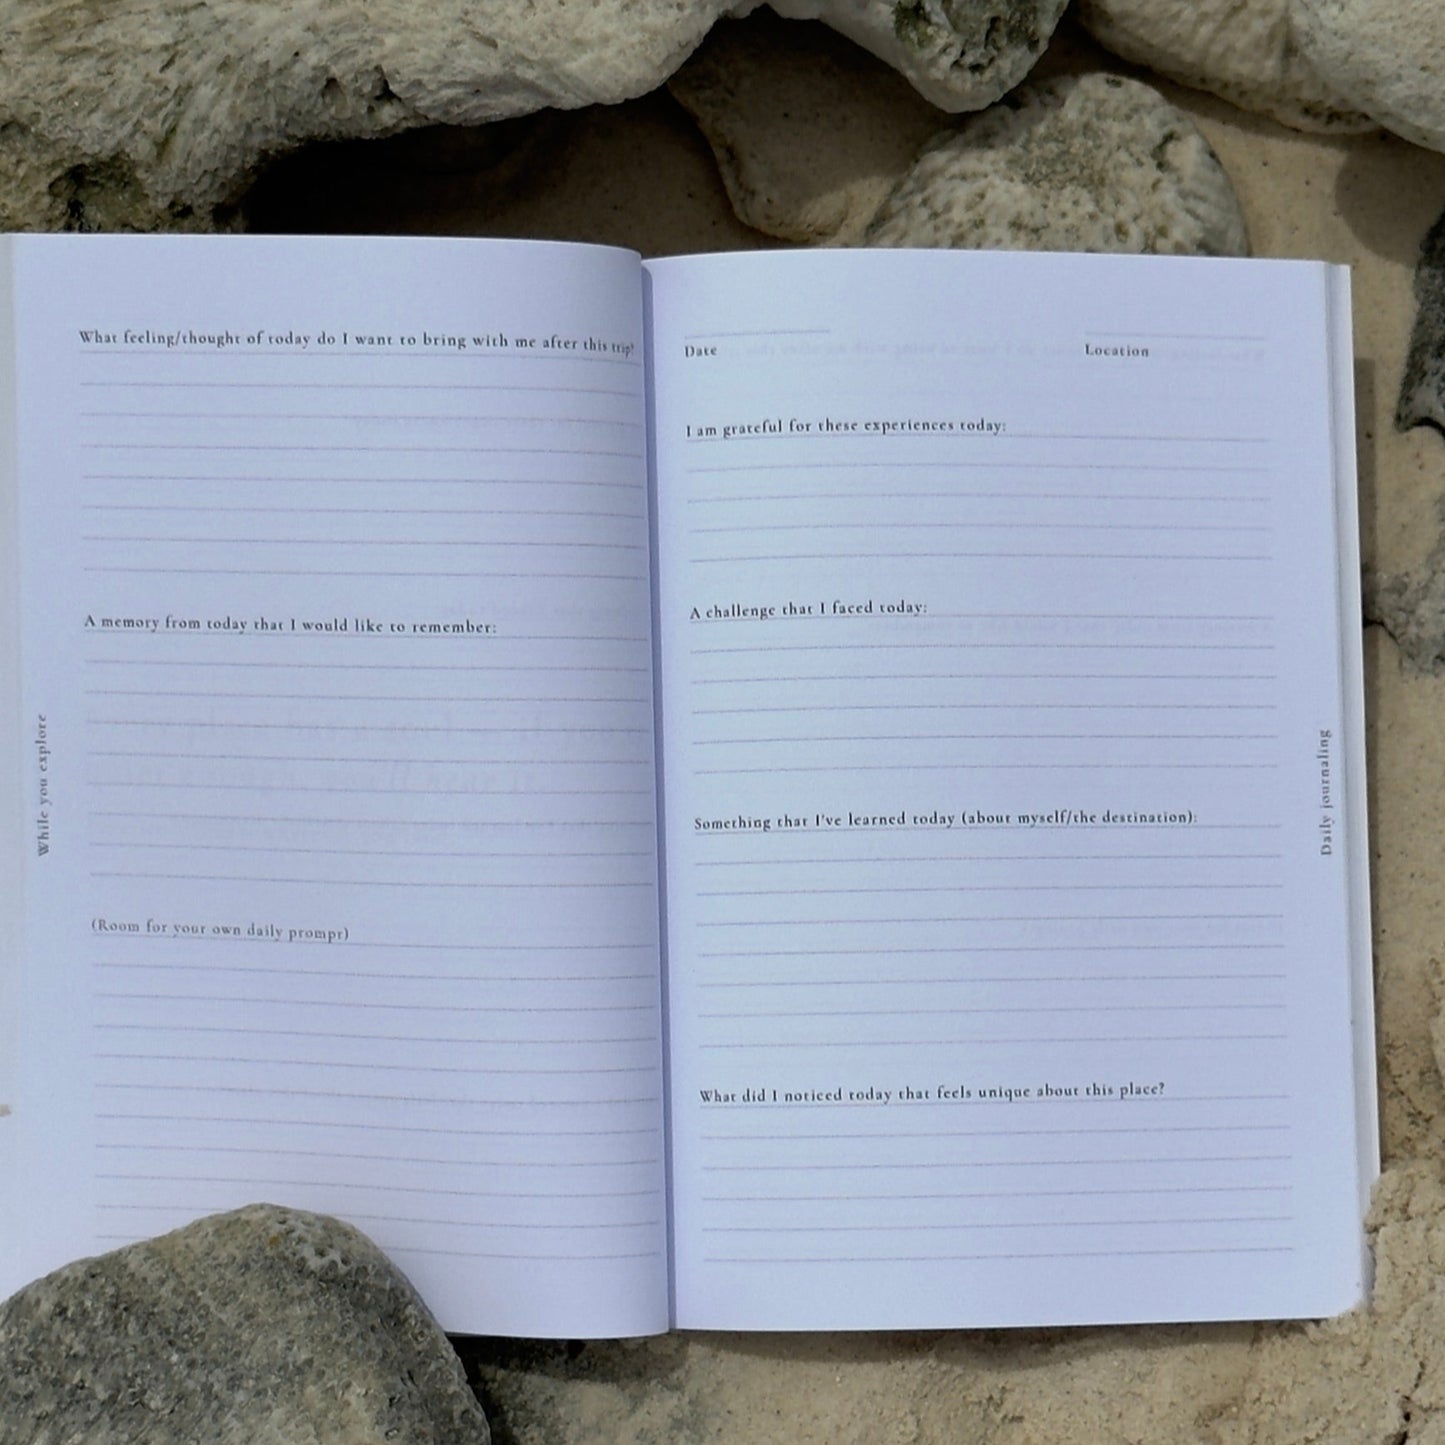 What feeling/thought of today do I want to bring with me after this trip?
A memory from today that I would like to remember:
(Room for your own daily prompt)
While you explore
Date
Location
I am grateful for these experiences today:
A challenge that I faced today:
Something that I've learned today (about myself/the destination):
What did I noticed today that feels unique about this place?
Daily journaling